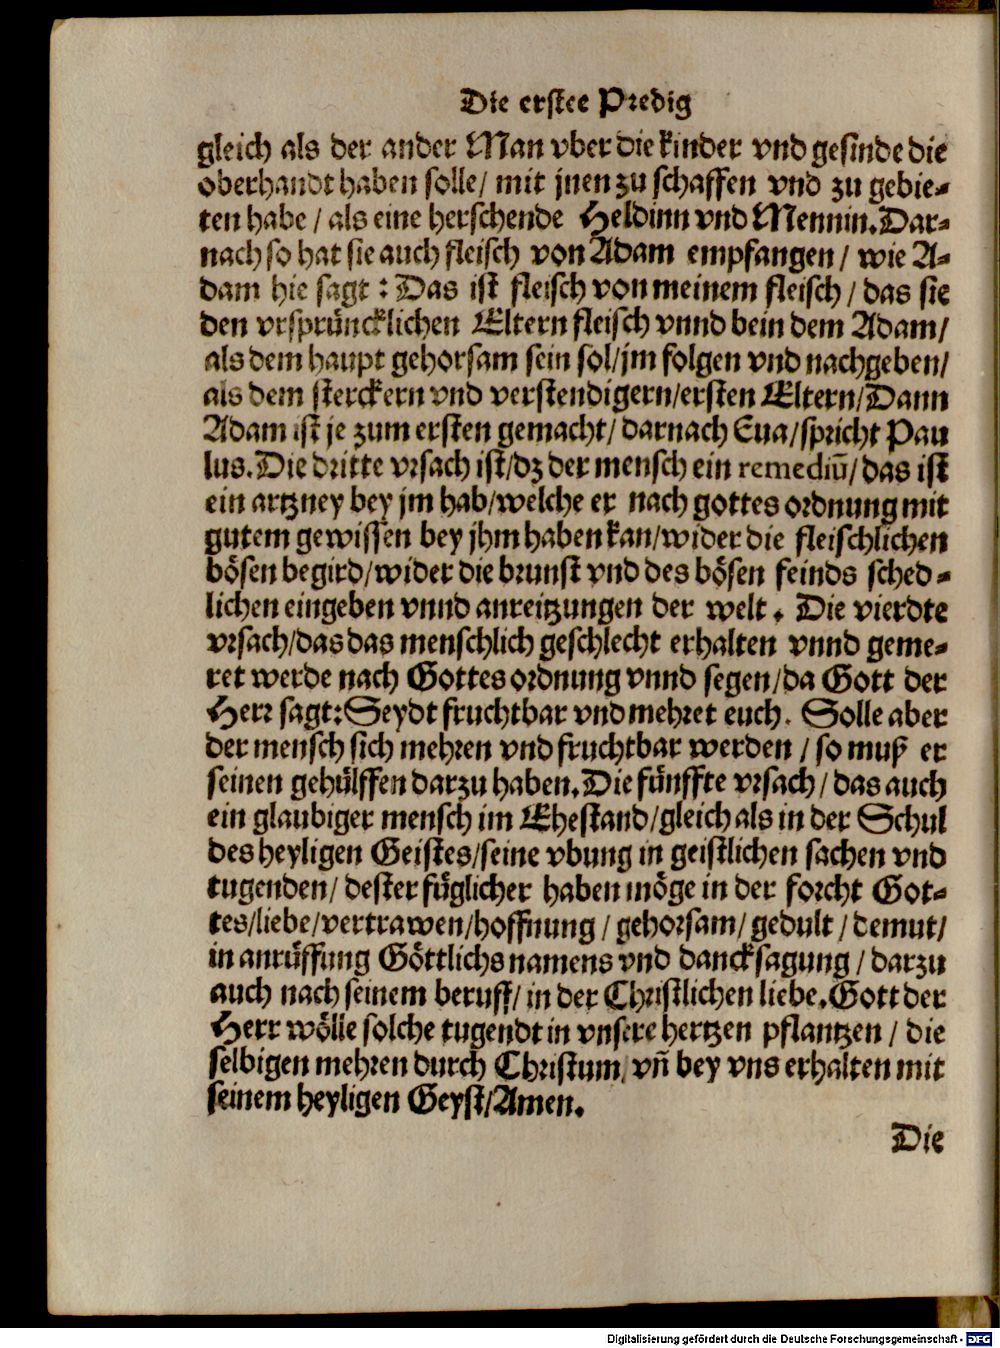 Die erstee Predig
gleich als der ander Man vber die kinder vnd gesinde die
oberhandt haben solle/ mit jnen zu schaffen vnd zu gebie-
ten habe / als eine herschende Heldinn vnd Mennin. Dar-
nach so hat sie auch fleisch von Adam empfangen / wie A-
dam hie sagt : Das ist fleisch von meinem fleisch / das sie
den vrsprüncklichen Eltern fleisch vnnd bein dem Adam/
als dem haupt gehorsam sein sol/jm folgen vnd nachgeben/
als dem sterckern vnd verstendigern/ersten Eltern/Dann
Adam ist je zum ersten gemacht/ darnach Eua/spricht Pau
lus. Die dritte vrsach ist/dz der mensch ein remediū/ das ist
ein artzney bey jm hab/welche er nach gottes ordnung mit
gutem gewissen bey jhm haben kan/wider die fleischlichen
bösen begird/wider die brunst vnd des bösen feinds sched-
lichen eingeben vnnd anreitzungen der welt. Die vierdte
vrsach/das das menschlich geschlecht erhalten vnnd geme-
ret werde nach Gottes ordnung vnnd segen/da Gott der
Herr sagt: Seydt fruchtbar vnd mehret euch. Solle aber
der mensch sich mehren vnd fruchtbar werden / so muß er
seinen gehülffen darzu haben. Die fünffte vrsach / das auch
ein glaubiger mensch im Ehestand/gleich als in der Schul
des heyligen Geistes/seine vbung in geistlichen sachen vnd
tugenden/ dester füglicher haben möge in der forcht Got-
tes/liebe/vertrawen/hoffnung / gehorsam/ gedult / demut/
in anrüffung Göttlichs namens vnd dancksagung / darzu
auch nach seinem beruff/ in der Christlichen liebe. Gott der
Herr wölle solche tugendt in vnsere hertzen pflantzen / die
selbigen mehren durch Christum, vn̄ bey vns erhalten mit
seinem heyligen Geyst/Amen.
Die
Digitalisierung gefördert durch die Deutsche Forschungsgemeinschaft - DFG